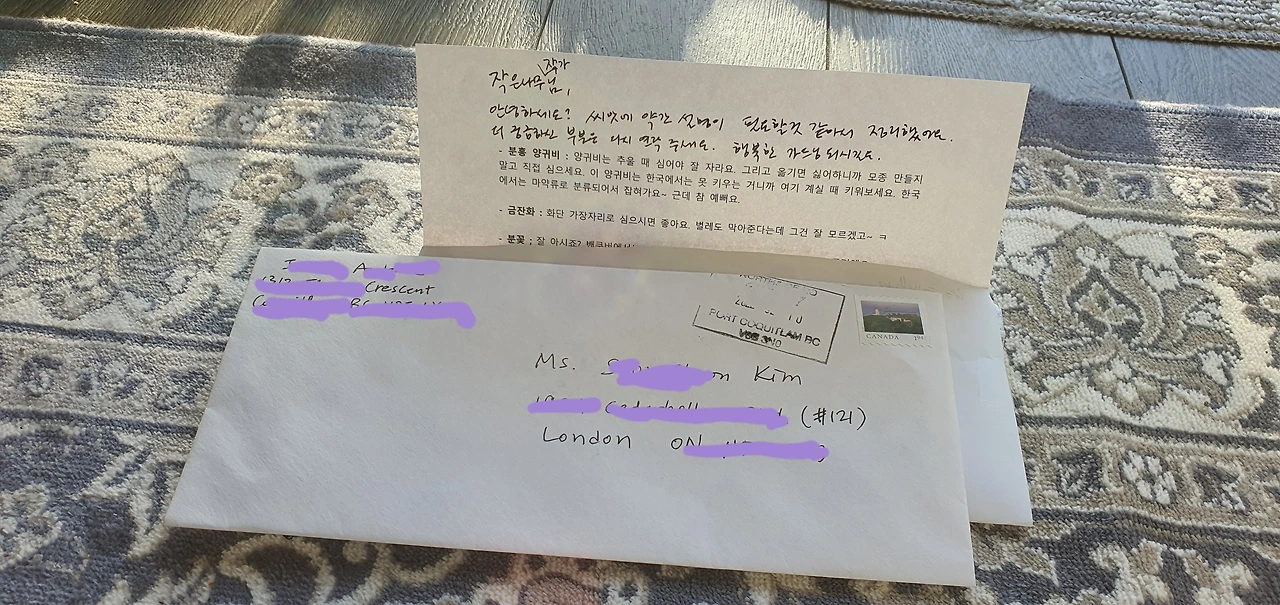 작가
작은나무님,
안녕하세요? 씨앗에 약간 설명이 필요할것 같아서 정리했어요.
더 궁금하신 부분은 다시 연락 주세요. 행복한 가드닝 되시길요.
- 분홍 양귀비 : 양귀비는 추울 때 심어야 잘 자라요. 그리고 옮기면 싫어하니까 모종 만들지
말고 직접 심으세요. 이 양귀비는 한국에서는 못 키우는 거니까 여기 계실 때 키워보세요. 한국
에서는 마약류로 분류되어서 잡혀가요~ 근데 참 예뻐요.
- 금잔화 : 화단 가장자리로 심으시면 좋아요. 벌레도 막아준다는데 그건 잘 모르겠고~ ㅋ
- 분꽃 : 잘 아시죠? 밴쿠버에서
Crescent
PORT COQUITLAM BC
CANADA
Ms. Kim
(#121)
London ON